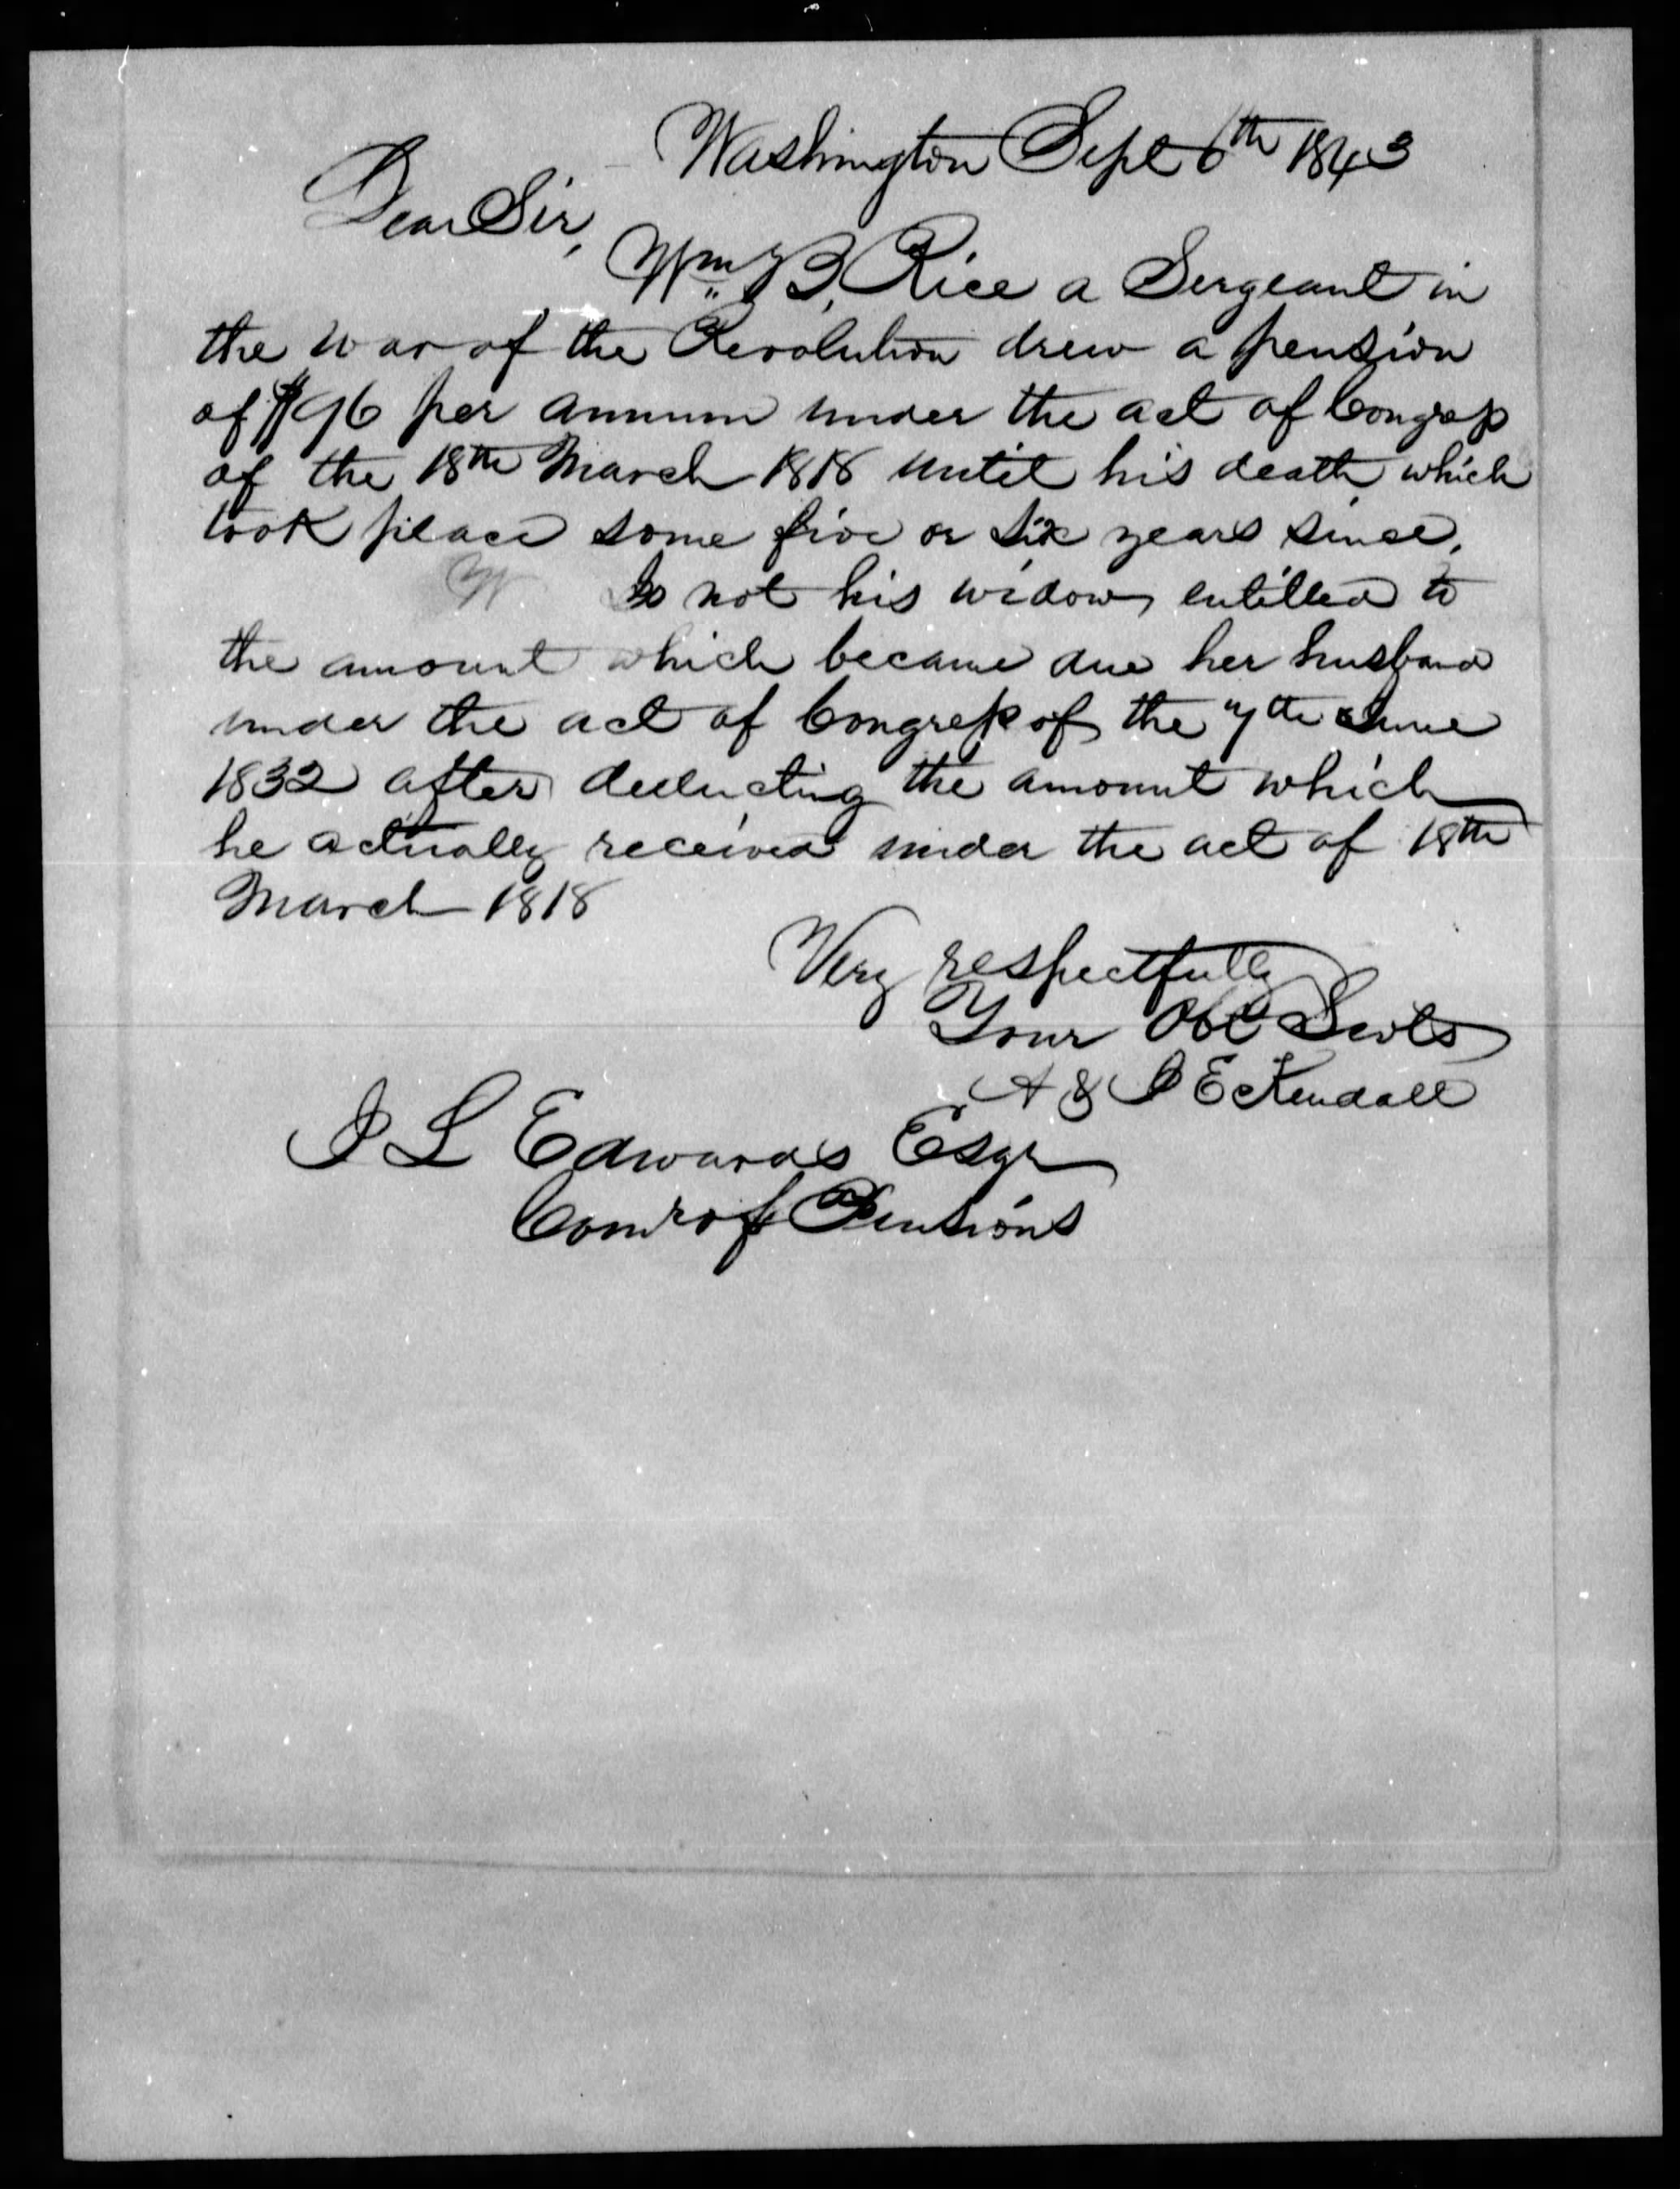 Washington Sept 6th 1843
Dear Sir,
Wm B. Rice a Sergeant in
the war of the Revolution drew a pension
of $96 per annum under the act of Congress
of the 18th March 1818 until his death which
took place some five or six years since.
Is not his widow entitled to
the amount which became due her husband
under the act of Congress of the 7th June
1832 after deducting the amount which
he actually received under the act of 18th
March 1818
Very respectfully
Your Obt Servts
A & J E Kendall
J L Edwards Esqr
Comr of Pensions